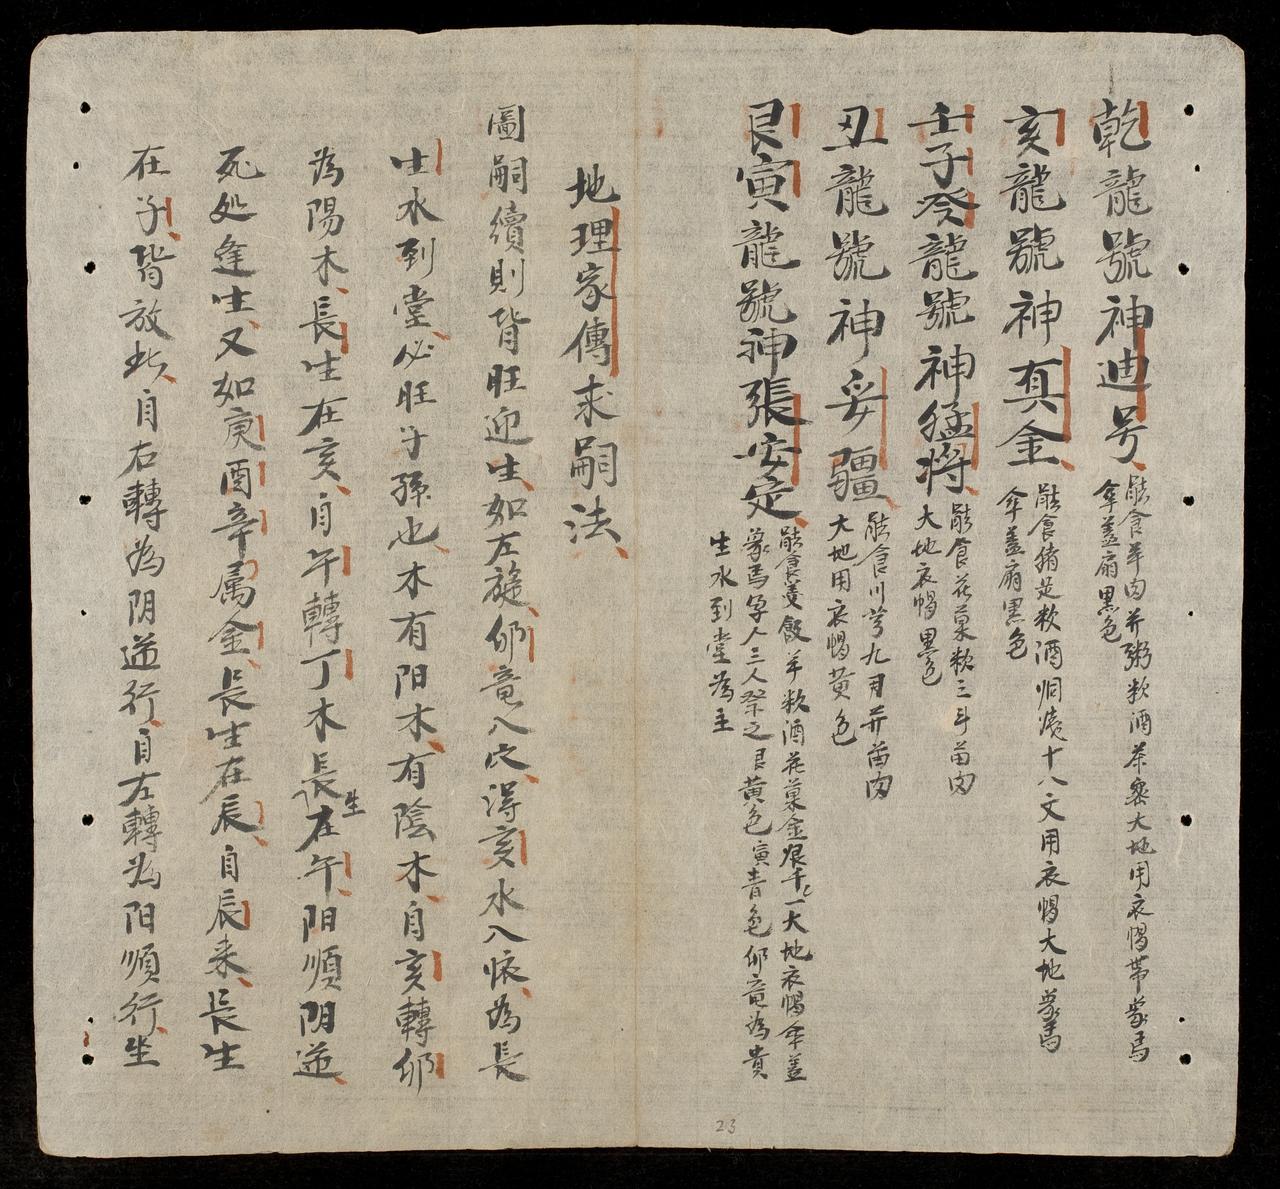 乾龍號神迪号
能食羊肉并粥歃酒茶密大地用衣帽帶象馬
傘盖扇黒色
亥龍號神真金
能食猪足歃酒洞溇十八文用衣帽大地象馬
傘盖扇黒色
壬子癸龍號神猛将
能食花菓歃三斗苗肉
大地衣帽黒色
丑龍號神妥疆
能食川芎九月并苗肉
大地用衣帽黄色
艮寅龍號神張安定
能食羹飯羊歃酒花菓金艮千一大地衣帽傘盖
象馬孕人三人祭之艮黄色寅青色夘竜為貴
生水到堂為主
地理家傳求嗣法
圖嗣續則背旺迎生如左旋夘竜入穴得亥水入懐為長
生水到堂必旺子孫也木有阳木有陰木自亥轉夘
為陽木長生在亥自午轉丁木長生在午阳順阴逆
死処逢生又如庚酉辛属金長生在辰自辰来長生
在子背放此自右轉為阴逆行自左轉為阳順行坐
23